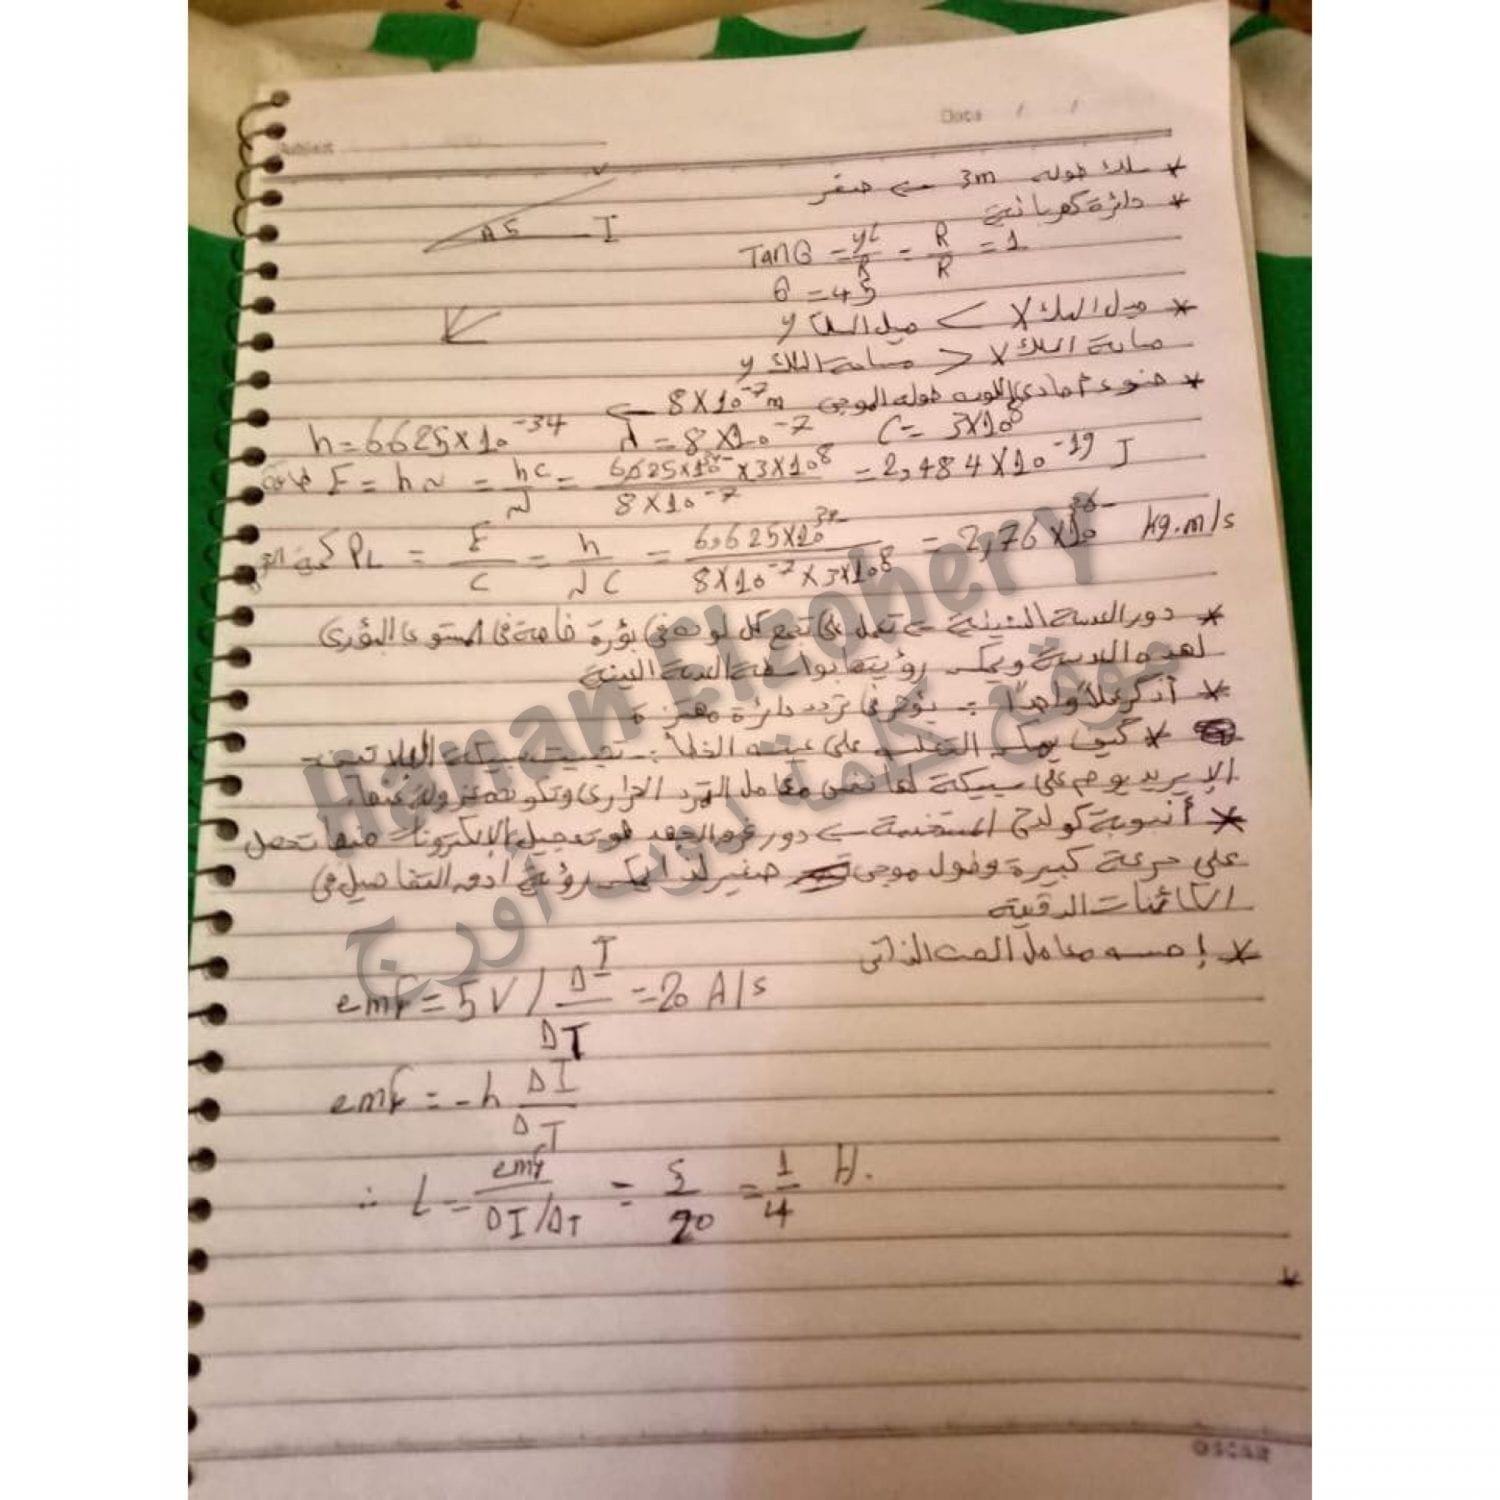 Subject
Date / /
* سلك طوله 3m ← صفر
* دائرة كهربائية
V
45 I
TanΘ = yL/R = R/R = 1
θ = 45
* ميل السلك X > ميل السلك y
مساحة السلك X < مساحة السلك y
* ضوء أحادي اللون طوله الموجى 8X10⁻⁷m ←
h = 6625x10⁻³⁴ λ = 8X10⁻⁷ C = 3X10⁸
طاقة E = hν = hc/λ = 6,625x10³⁴⁻ x3x10⁸ / 8X10⁻⁷ = 2,484X10⁻¹⁹ J
PL = E/C = h/λC = 6,625X10³⁴⁻ / 8X10⁻⁷ x 3X10⁸ = 2,76X10³⁶⁻ kg.m/s
* دور العدسة الشيئية ← تعمل على تجمع كل لون فى بؤرة خاصة فى المستوى البؤرى
لهذه العدسة ويمكن رؤيتها بواسطة العدسة العينية
* أذكر عاملاً واحداً :- يؤثر فى تردد دائرة مهتزة
* كيف يمكن التغلب على عيب الخطأ :- تثبيت سبيكة البلاتين
الإيريديوم على سبيكة لها نفس معامل التمدد الحرارى وتكون معزولة عنها
* أنبوبة كولدج المستخدمة ← دور فرق الجهد هو تعجيل الإلكترونات منها تحصل
على سرعة كبيرة وطول موجى صغير لذا يمكن رؤية أدق التفاصيل فى
الكائنات الدقيقة
* إحسب معامل الحث الذاتى
emf = 5V / ΔI/ΔT = 20 A/s
emf = -h ΔI/ΔT
∴ L = emf / ΔI/ΔT = 5/20 = 1/4 H.
*
OSCAR
Hanan Elzohery
موقع كلمة دوت أورج